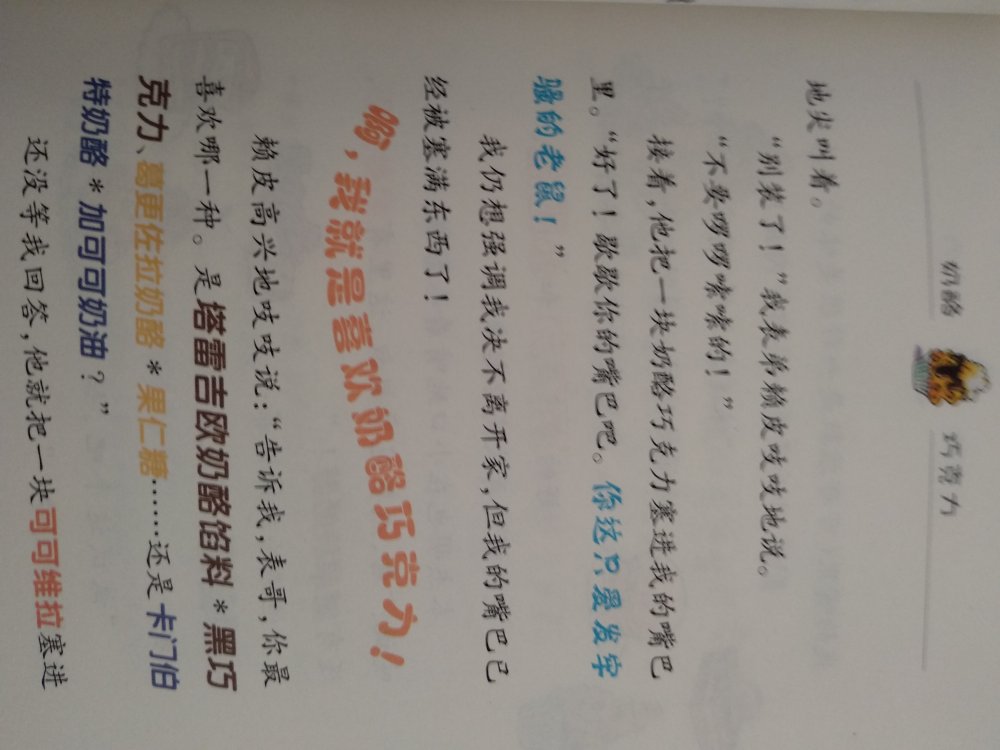 奶酪 巧克力
地尖叫着。
“别装了！”我表弟赖皮吱吱地说。
“不要啰啰嗦嗦的！”
接着，他把一块奶酪巧克力塞进我的嘴巴
里。“好了！歇歇你的嘴巴吧。你这只爱发牢
骚的老鼠！”
我仍想强调我决不离开家，但我的嘴巴已
经被塞满东西了！
啊，我就是喜欢奶酪巧克力！
赖皮高兴地吱吱说：“告诉我，表哥，你最
喜欢哪一种。是塔雷吉欧奶酪馅料*黑巧
克力、葛更佐拉奶酪*果仁糖……还是卡门伯
特奶酪*加可可奶油？”
还没等我回答，他就把一块可可维拉塞进